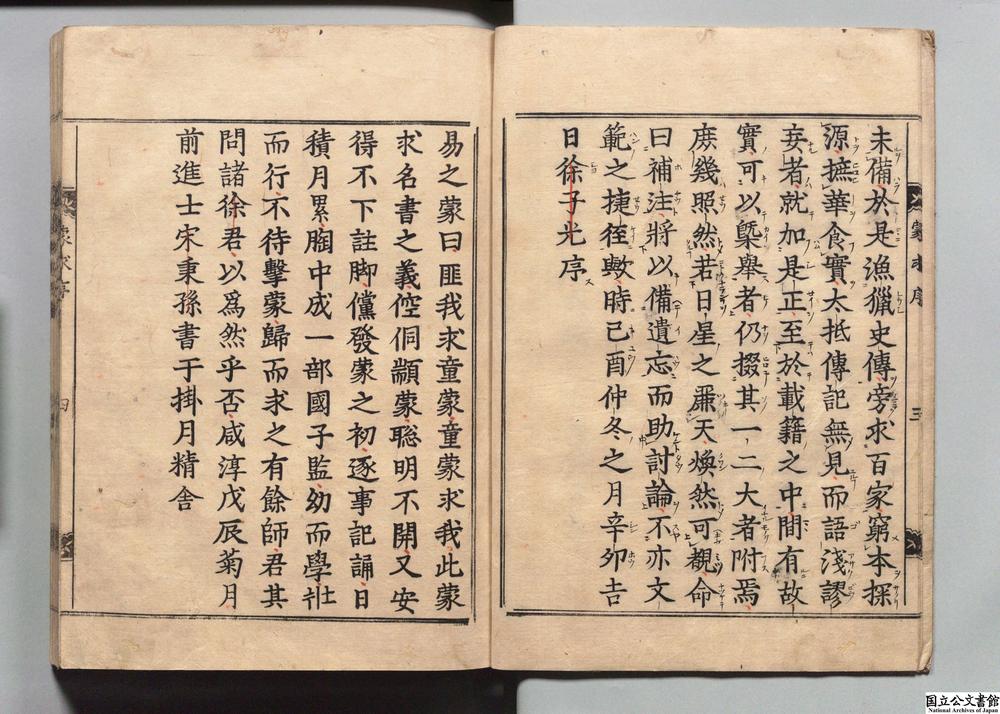 未備於是漁獵史傳旁求百家窮本探
源摭華食實太抵傳記無見而語淺謬
妄者就加是正至於載籍之中間有故
實可以槩舉者仍掇其一二大者附焉
庶幾照然若日星之麗天煥然可觀命
曰補注將以備遺忘而助討論不亦文
範之捷徑歟時己酉仲冬之月辛卯吉
日徐子光序
蒙求序
三
易之蒙曰匪我求童蒙童蒙求我此蒙
求名書之義倥侗顓蒙聰明不開又安
得不下註脚儻發蒙之初逐事記誦日
積月累胸中成一部國子監幼而學壯
而行不待擊蒙歸而求之有餘師君其
問諸徐君以爲然乎否咸淳戊辰菊月
前進士宋秉孫書于掛月精舍
蒙求序
四
国立公文書館
National Archives of Japan